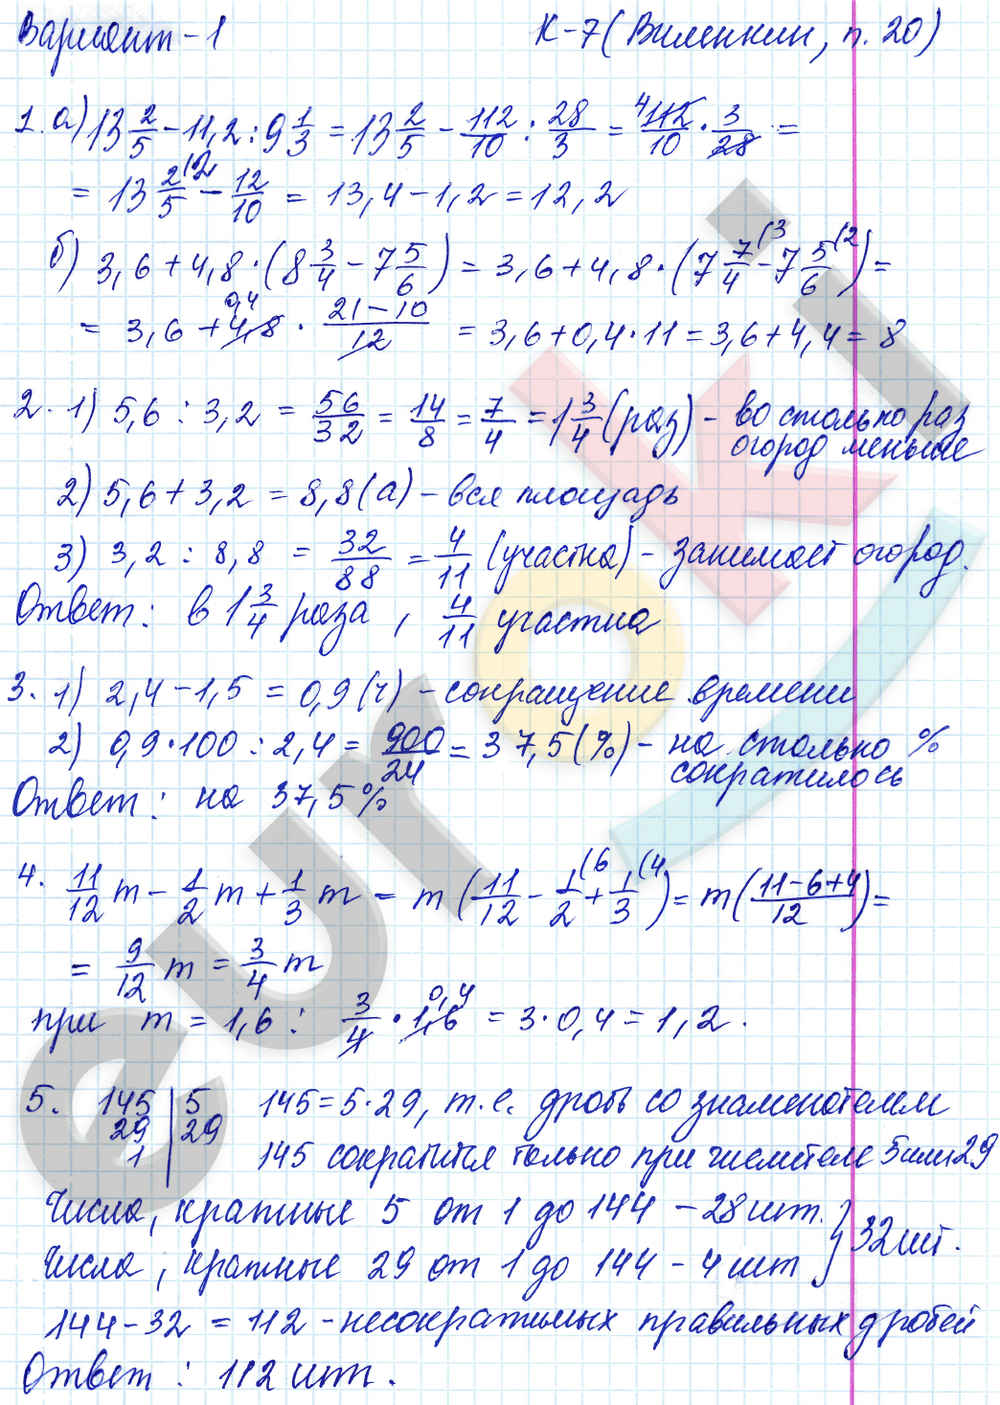 Вариант-1 К-7 (Виленкин, п. 20)
1. а) 13 2/5 - 11,2 : 9 1/3 = 13 2/5 - 112/10 : 28/3 = 112/10 · 3/28 =
= 13 2/5 - 12/10 = 13,4 - 1,2 = 12,2
б) 3,6 + 4,8 · (8 3/4 - 7 5/6) = 3,6 + 4,8 · (7 7/4 - 7 5/6) =
= 3,6 + 4,8 · (21-10)/12 = 3,6 + 0,4 · 11 = 3,6 + 4,4 = 8
2. 1) 5,6 : 3,2 = 56/32 = 14/8 = 7/4 = 1 3/4 (раз) - во столько раз
огород меньше
2) 5,6 + 3,2 = 8,8 (а) - вся площадь
3) 3,2 : 8,8 = 32/88 = 4/11 (участка) - занимает огород.
Ответ: в 1 3/4 раза, 4/11 участка
3. 1) 2,4 - 1,5 = 0,9 (ч) - сокращение времени
2) 0,9 · 100 : 2,4 = 900/24 = 37,5 (%) - на столько %
сократилось
Ответ: на 37,5%
4. 11/12 m - 1/2 m + 1/3 m = m (11/12 - 1/2 + 1/3) = m ((11-6+4)/12) =
= 9/12 m = 3/4 m
при m = 1,6 : 3/4 · 1,6 = 3 · 0,4 = 1,2.
5. 145 | 5 145 = 5 · 29, т.е. дробь со знаменателем
29 | 29
1 | 145 сократится только при числителе 5 или 29
Числа, кратные 5 от 1 до 144 - 28 шт.
} 32 шт.
Числа, кратные 29 от 1 до 144 - 4 шт
144 - 32 = 112 - несократимых правильных дробей
Ответ: 112 шт.
euroki